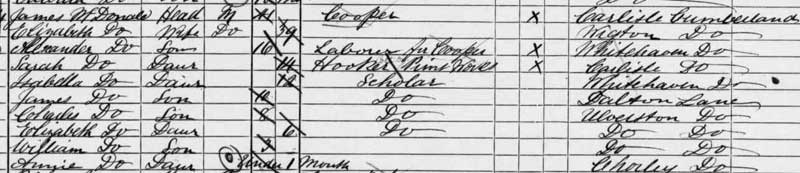 James McDonald Head M 41 Cooper X Carlisle Cumberland
Elizabeth Do Wife Do 39 Wigton Do
Alexander Do Son 16 Labour Cooper X Whitehaven Do
Sarah Do Daur 14 Hooker Print Works X Carlisle Do
Isabella Do Daur 12 Scholar Whitehaven Do
James Do Son 10 Do Dalton Lanc
Charles Do Son 8 Do Ulverston Do
Elizabeth Do Daur 6 Do Do Do
William Do Son 3 Do Do
Annie Do Daur Under 1 Month Chorley Do